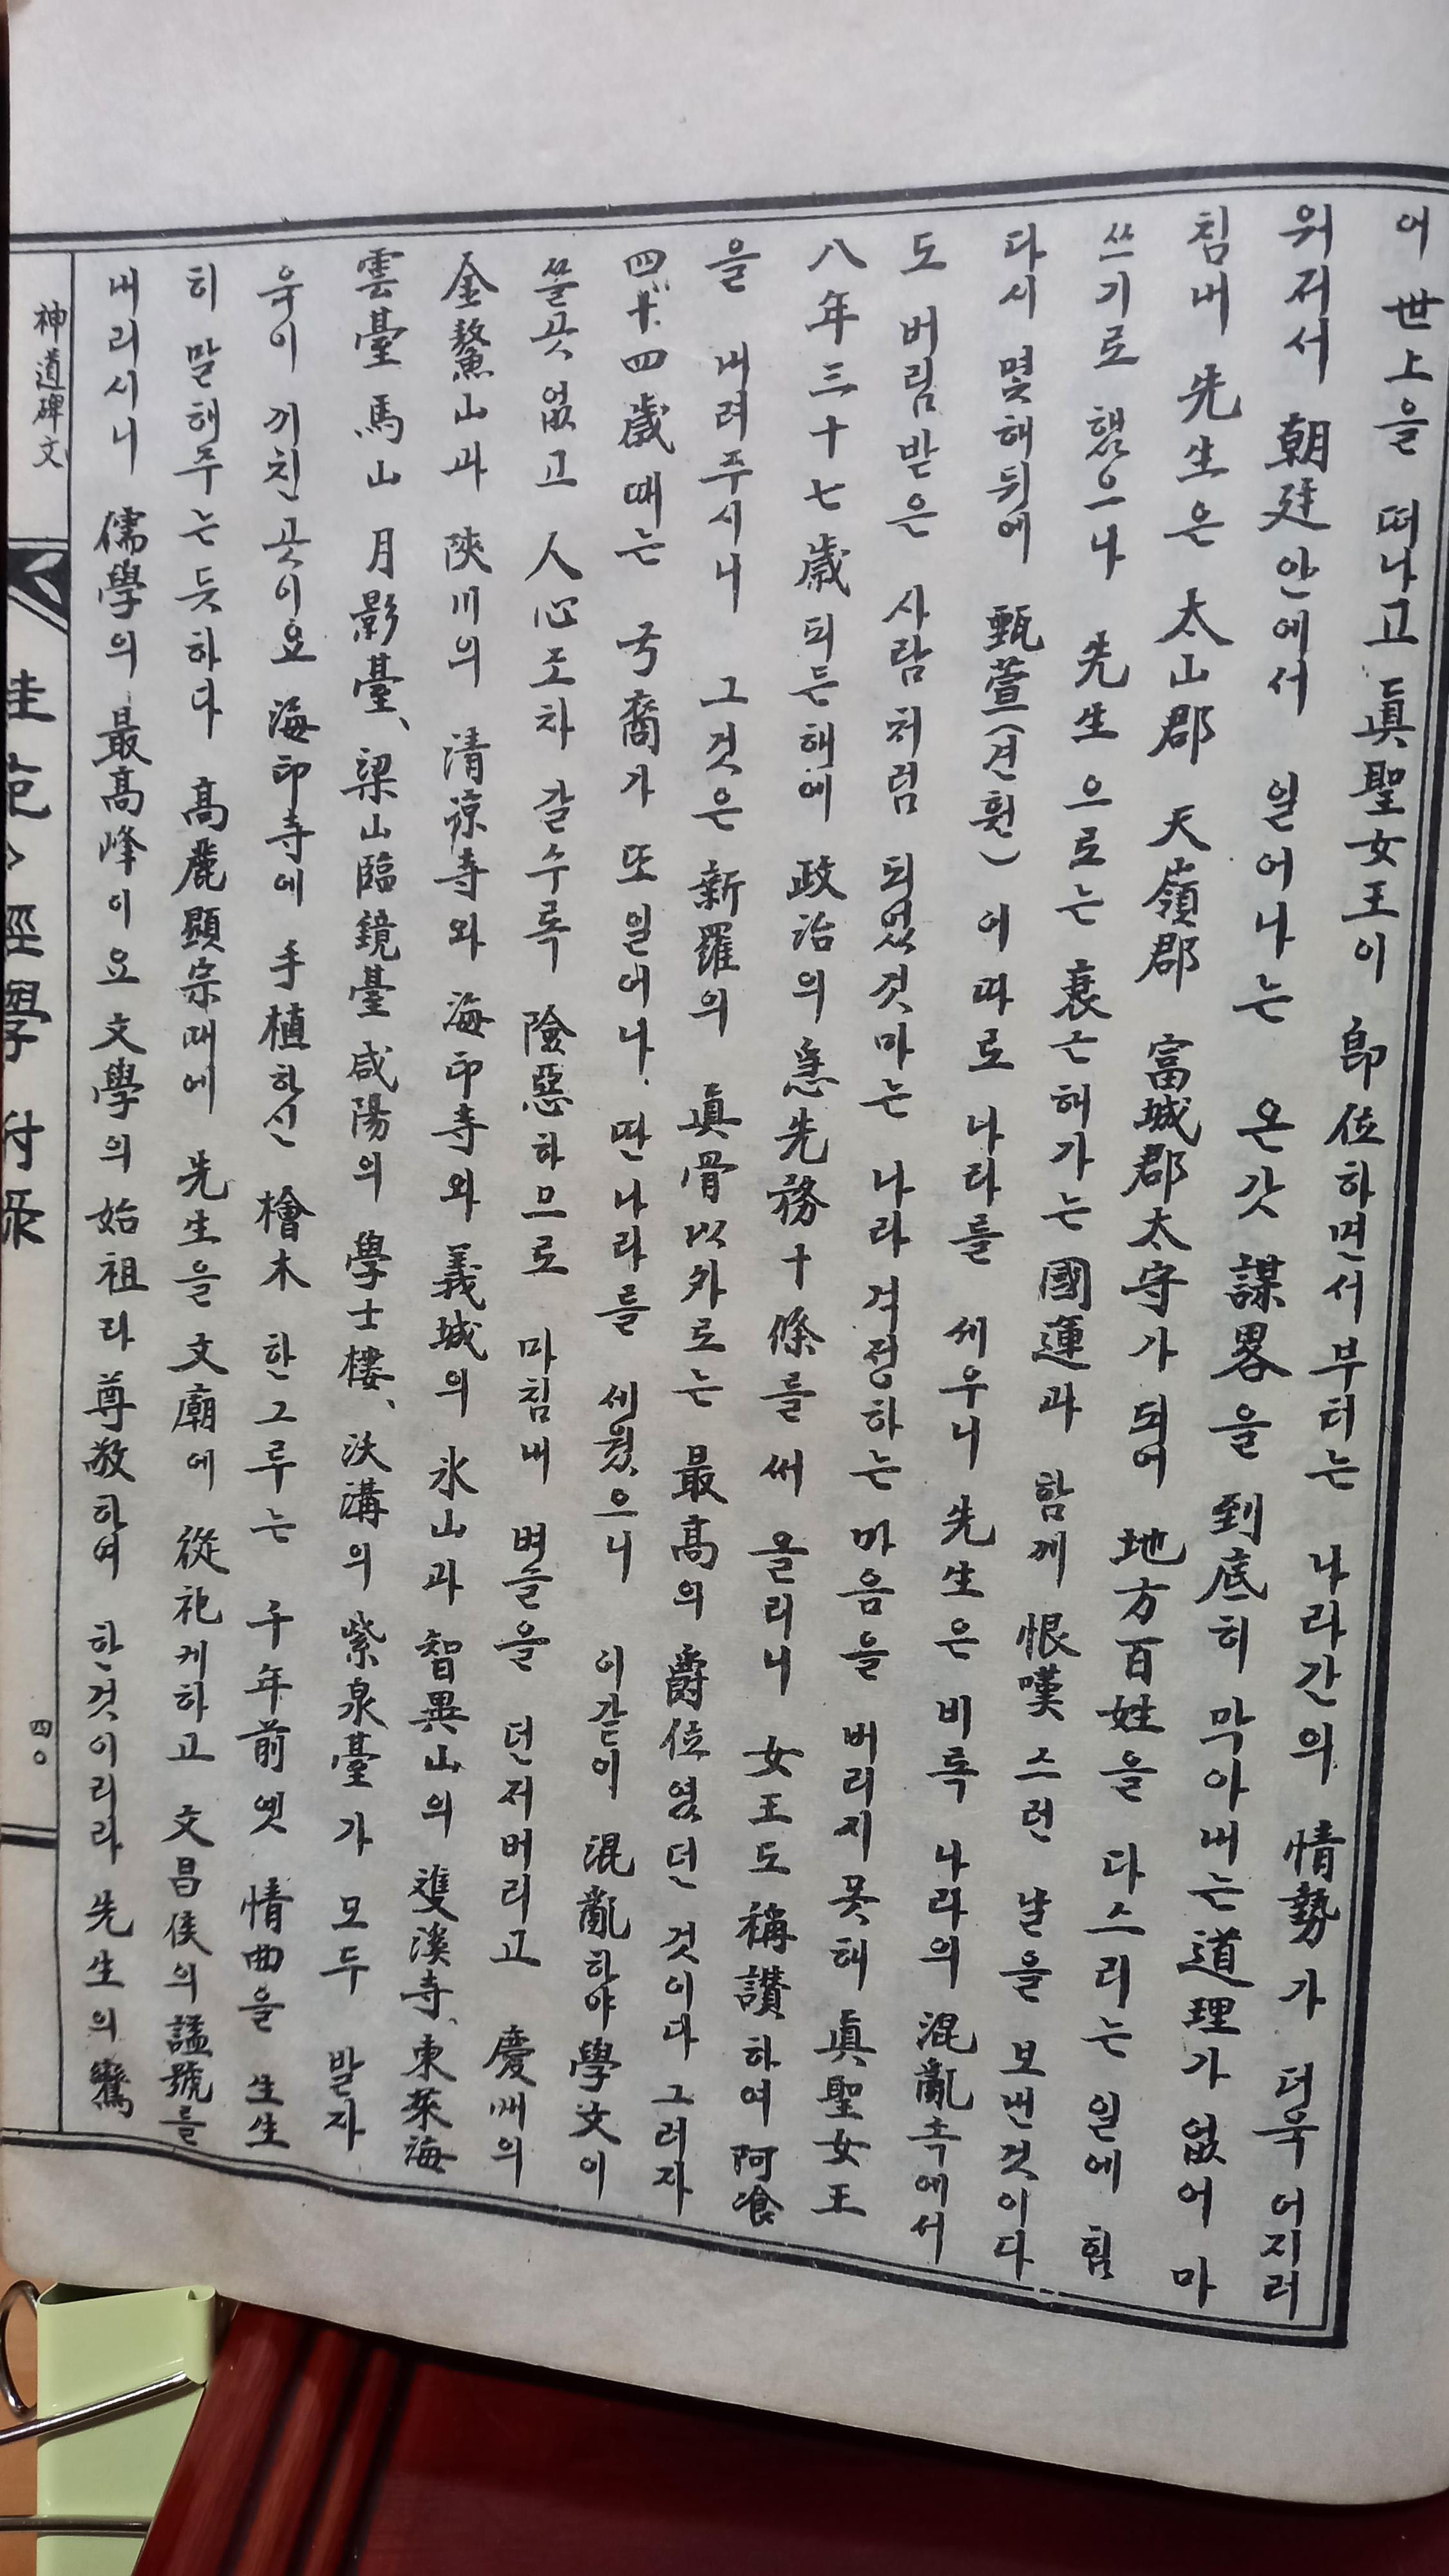 어 世上을 떠나고 眞聖女王이 卽位하면서부터는 나라간의 情勢가 더욱 어지러
워저서 朝廷안에서 일어나는 온갓 謀畧을 到底히 막아내는 道理가 없어 마
침내 先生은 太山郡 天嶺郡 富城郡太守가 되여 地方百姓을 다스리는 일에 힘
쓰기로 했으나 先生으로는 衰근해가는 國運과 함께 恨嘆스런 날을 보낸것이다
다시 몇해뒤에 甄萱(견훤)이 따로 나라를 세우니 先生은 비록 나라의 混亂속에서
도 버림받은 사람처럼 되였것마는 나라 걱정하는 마음을 버리지못해 眞聖女王
八年三十七歲되든해에 政治의 急先務十條를 써 올리니 女王도 稱讃하여 阿飡
을 내려주시니 그것은 新羅의 眞骨以外로는 最高의 爵位였던 것이다 그러자
四十四歲때는 국裔가 또 일어나、딴나라를 세웠으니 이같이 混亂하야 學文이
쓸곳없고 人心조차 갈수록 險惡하므로 마침내 벼슬을 던저버리고 慶州의
金鰲山과 陜川의 清凉寺와 海印寺와 義城의 氷山과 智異山의 雙溪寺、東萊海
雲臺 馬山 月影臺、梁山臨鏡臺 咸陽의 學士樓、沃溝의 紫泉臺가 모두 발자
욱이 끼친곳이요 海印寺에 手植하신 檜木 한그루는 千年前옛 情曲을 生生
히 말해주는듯하다 高麗顯宗때에 先生을 文廟에 從祀케하고 文昌侯의 謚號를
내리시니 儒學의 最高峰이요 文學의 始祖라 尊敬하여 한것이리라 先生의
神道碑文
四〇